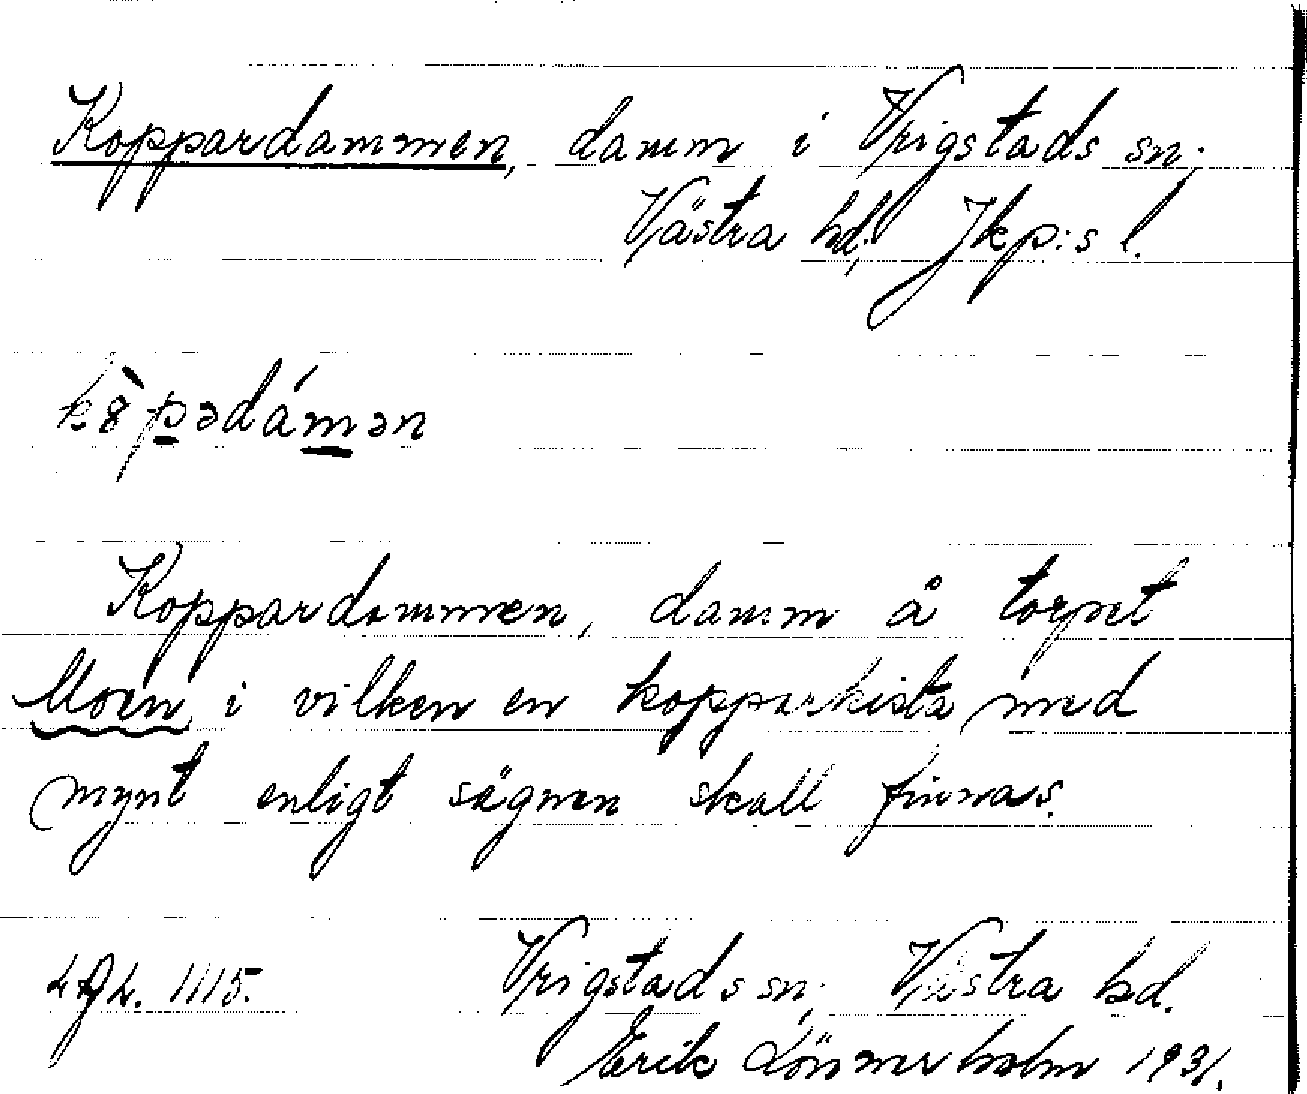 Koppardammen, damm i Vrigstads sn;
Västra hd; Jkp:s l.
kò̀pədámən
Koppardammen, damm å torpet
Moen, i vilken en kopparkista med
mynt enligt sägnen skall finnas.
1115. Vrigstads sn; Västra hd.
Erik Lönnerholm 1931.